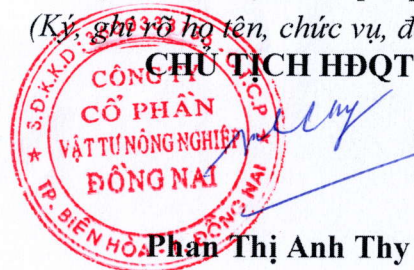 (Ký, ghi rõ họ tên, chức vụ, đ
CHỦ TỊCH HĐQT
CÔNG TY
CỔ PHẦN
VẬT TƯ NÔNG NGHIỆP
ĐỒNG NAI
TP. BIÊN HÒA - T. ĐỒNG NAI
Phan Thị Anh Thy